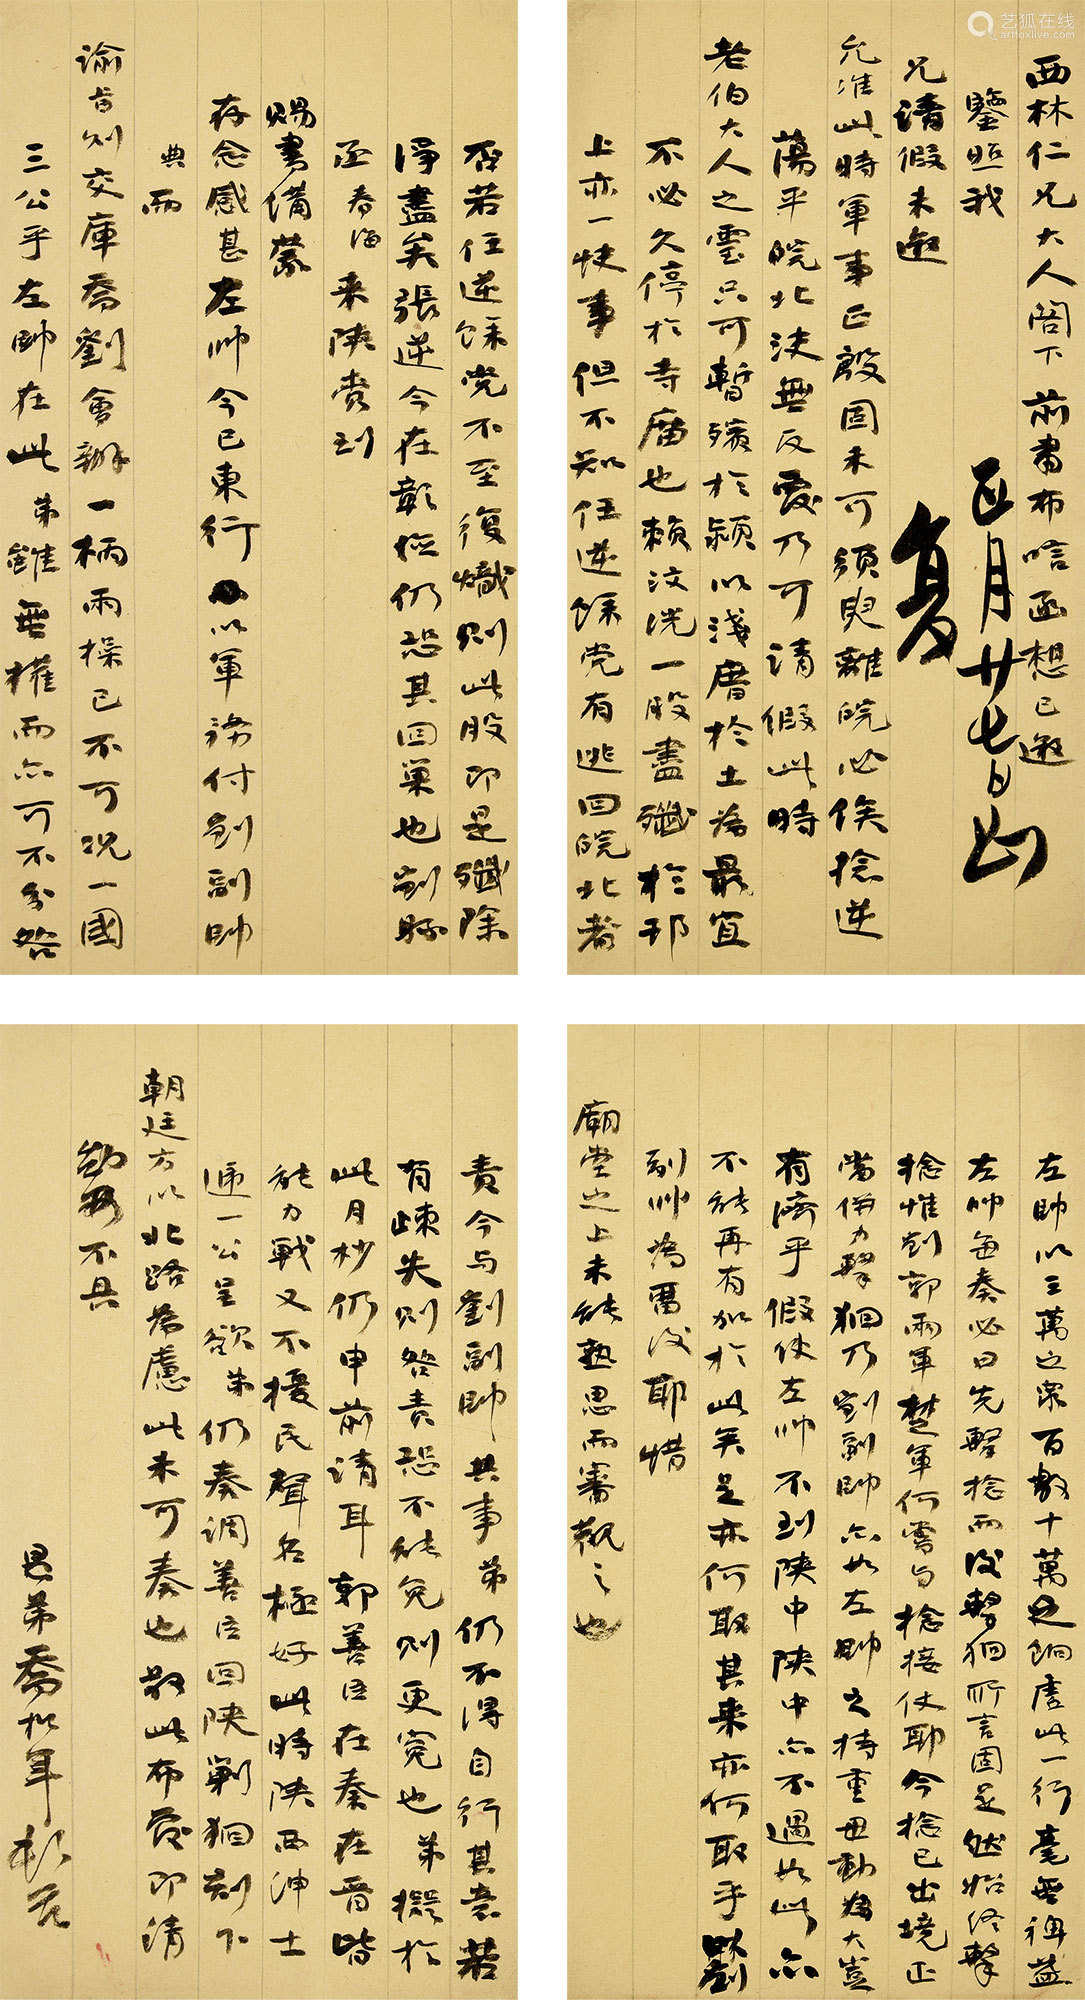 西林仁兄大人閣下前肅布唁函想已邀
鑒照我
兄請假未邀
允准此時軍事正殷固未可須臾離皖必俟捻逆
蕩平皖北決無反覆乃可請假此時
老伯大人之靈只可暫殯於潁以淺厝於土為最宜
不必久停於寺廟也賴汶洸一股盡殲於邗
上亦一快事但不知任逆餘党有逃回皖北者
正月廿七日
复
否若任逆餘党不至復熾則此股即是殲除
淨盡矣張逆今在彰 仍恐其回巢也劉
函春海来陝賫到
賜書備蒙
存念感甚左帥今已東行 以軍務付劉副帥
典而
諭旨則交庫喬劉會辦一柄兩操已不可況一國
三公乎左帥在此弟雖無權而亦可不分咎
左帥以三萬之眾百數十萬之餉虛此一行毫無裨益
左帥每奏必曰先擊捻而後擊狪所言固是然始終擊
捻惟劉郭兩軍楚軍何嘗与捻接仗耶今捻已出境正
當併力擊狪乃劉副帥亦如左帥之持重毋動為大豈
有濟乎假使左帥不到陝中陝中亦不過如此亦
不能再有加於此矣是亦何取其来亦何取乎劉
副帥為畱後耶惜
廟堂之上未能熟思而審觀之也
責今与劉副帥共事弟仍不得自行其意若
有疎失則咎責恐不能免則更冤也弟擬於
此月杪仍申前請耳郭善臣在秦在晉皆
能力戰又不擾民聲名極好此時陝西紳士
遞一公呈欲弟仍奏調善臣回陝剿狪刻下
朝廷方以北路為慮此未可奏也敬此布覆即請
勛安不具
愚弟喬松年頓首
艺狐在线
artfoxlive.com